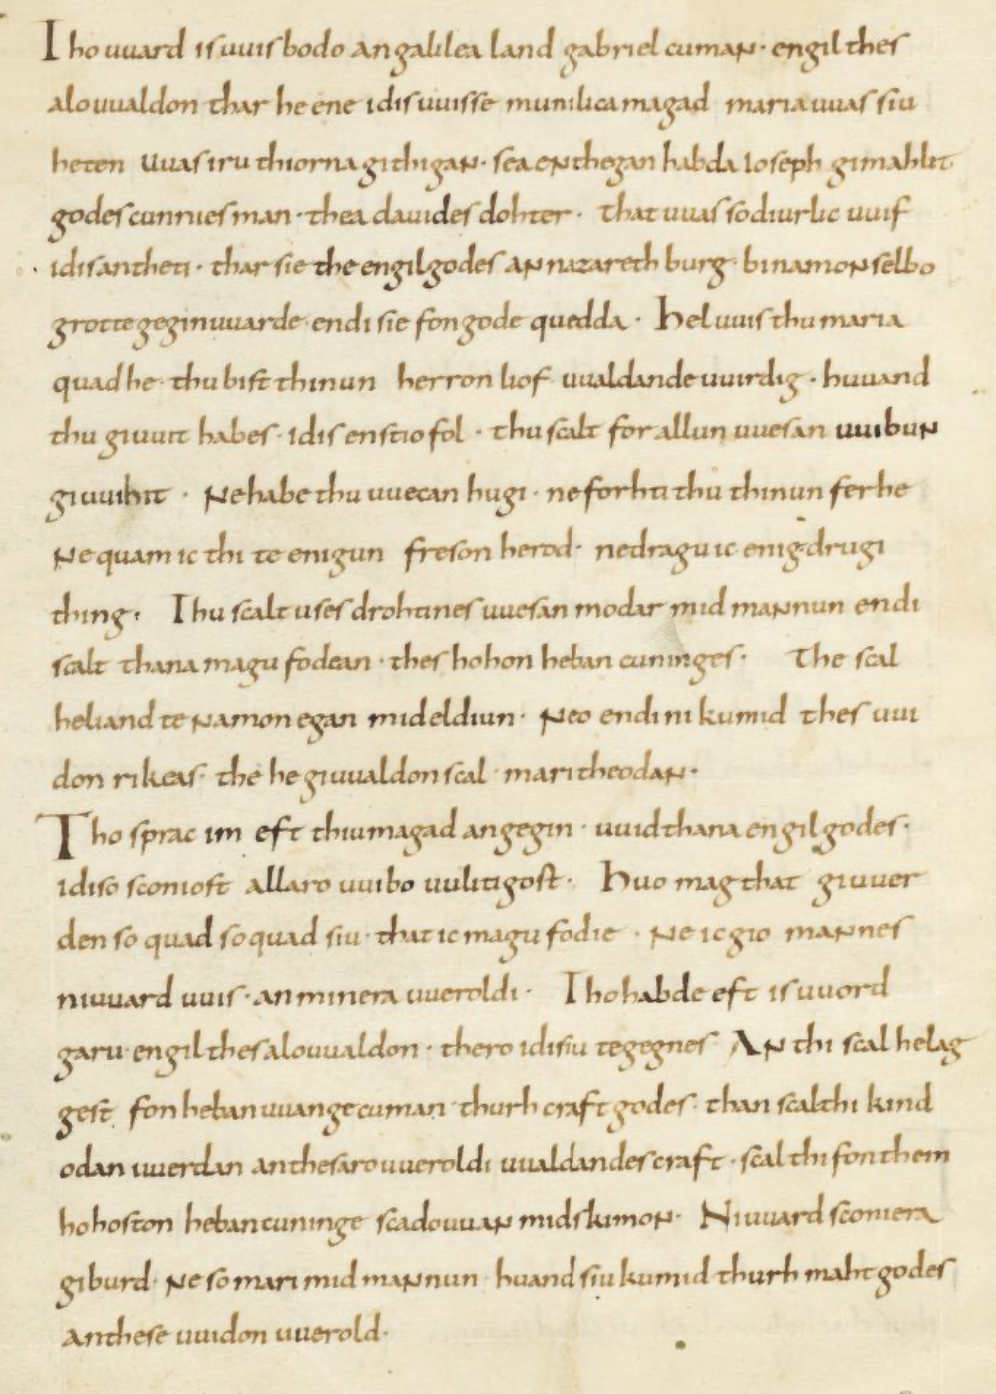 Tho uuard is uuisbodo an galilea land gabriel cuman · engil thes
alouualdon thar he ene idis uuisse munilica magad maria uuas siu
heten Uuas iru thiorna githigan · sea en thegan habda Ioseph gimahlit
godes cunnies man · thea dauides dohter · that uuas so diurlic uuif
idis antheti · thar sie the engil godes an nazareth burg · bi namon selbo
grotte geginuuarde · endi sie fon gode quedda · Hel uuis thu maria
quad he · thu bist thinun herron liof uualdande uuirdig · huuand
thu giuuit habes · idis enstio fol · thu scalt for allun uuesan uuibun
giuuihit · Ne habe thu uuecan hugi · ne forhti thu thinun ferhe
Ne quam ic thi te enigun freson herod · ne dragu ic enig drugi
thing · Thu scalt uses drohtines uuesan modar mid mannun endi
scalt thana magu fodean · thes hohon heban cuninges · The scal
heliand te namon egan mid eldiun · Neo endi ni kumid thes uui
don rikeas · the he giuualdon scal · mari theodan ·
Tho sprac im eft thiu magad angegin · uuid thana engil godes ·
idiso sconiost allaro uuibo uulitigost · Huo mag that giuuer
den so quad so quad siu · that ic magu fodie · Ne ic gio mannes
ni uuard uuis · an minera uueroldi · Tho habde eft is uuord
garu · engil thes alouualdon · thero idisiu tegegnes · An thi scal helag
gest fon hebanuuange cuman · thurh craft godes · than scal thi kind
odan uuerdan an thesaro uueroldi uualdandes craft · scal thi fon them
hohoston hebancuninge scadouuan mid skimon · Ni uuard sconiera
giburd · Ne so mari mid mannun · huand siu kumid thurh maht godes
an these uuidon uuerold ·